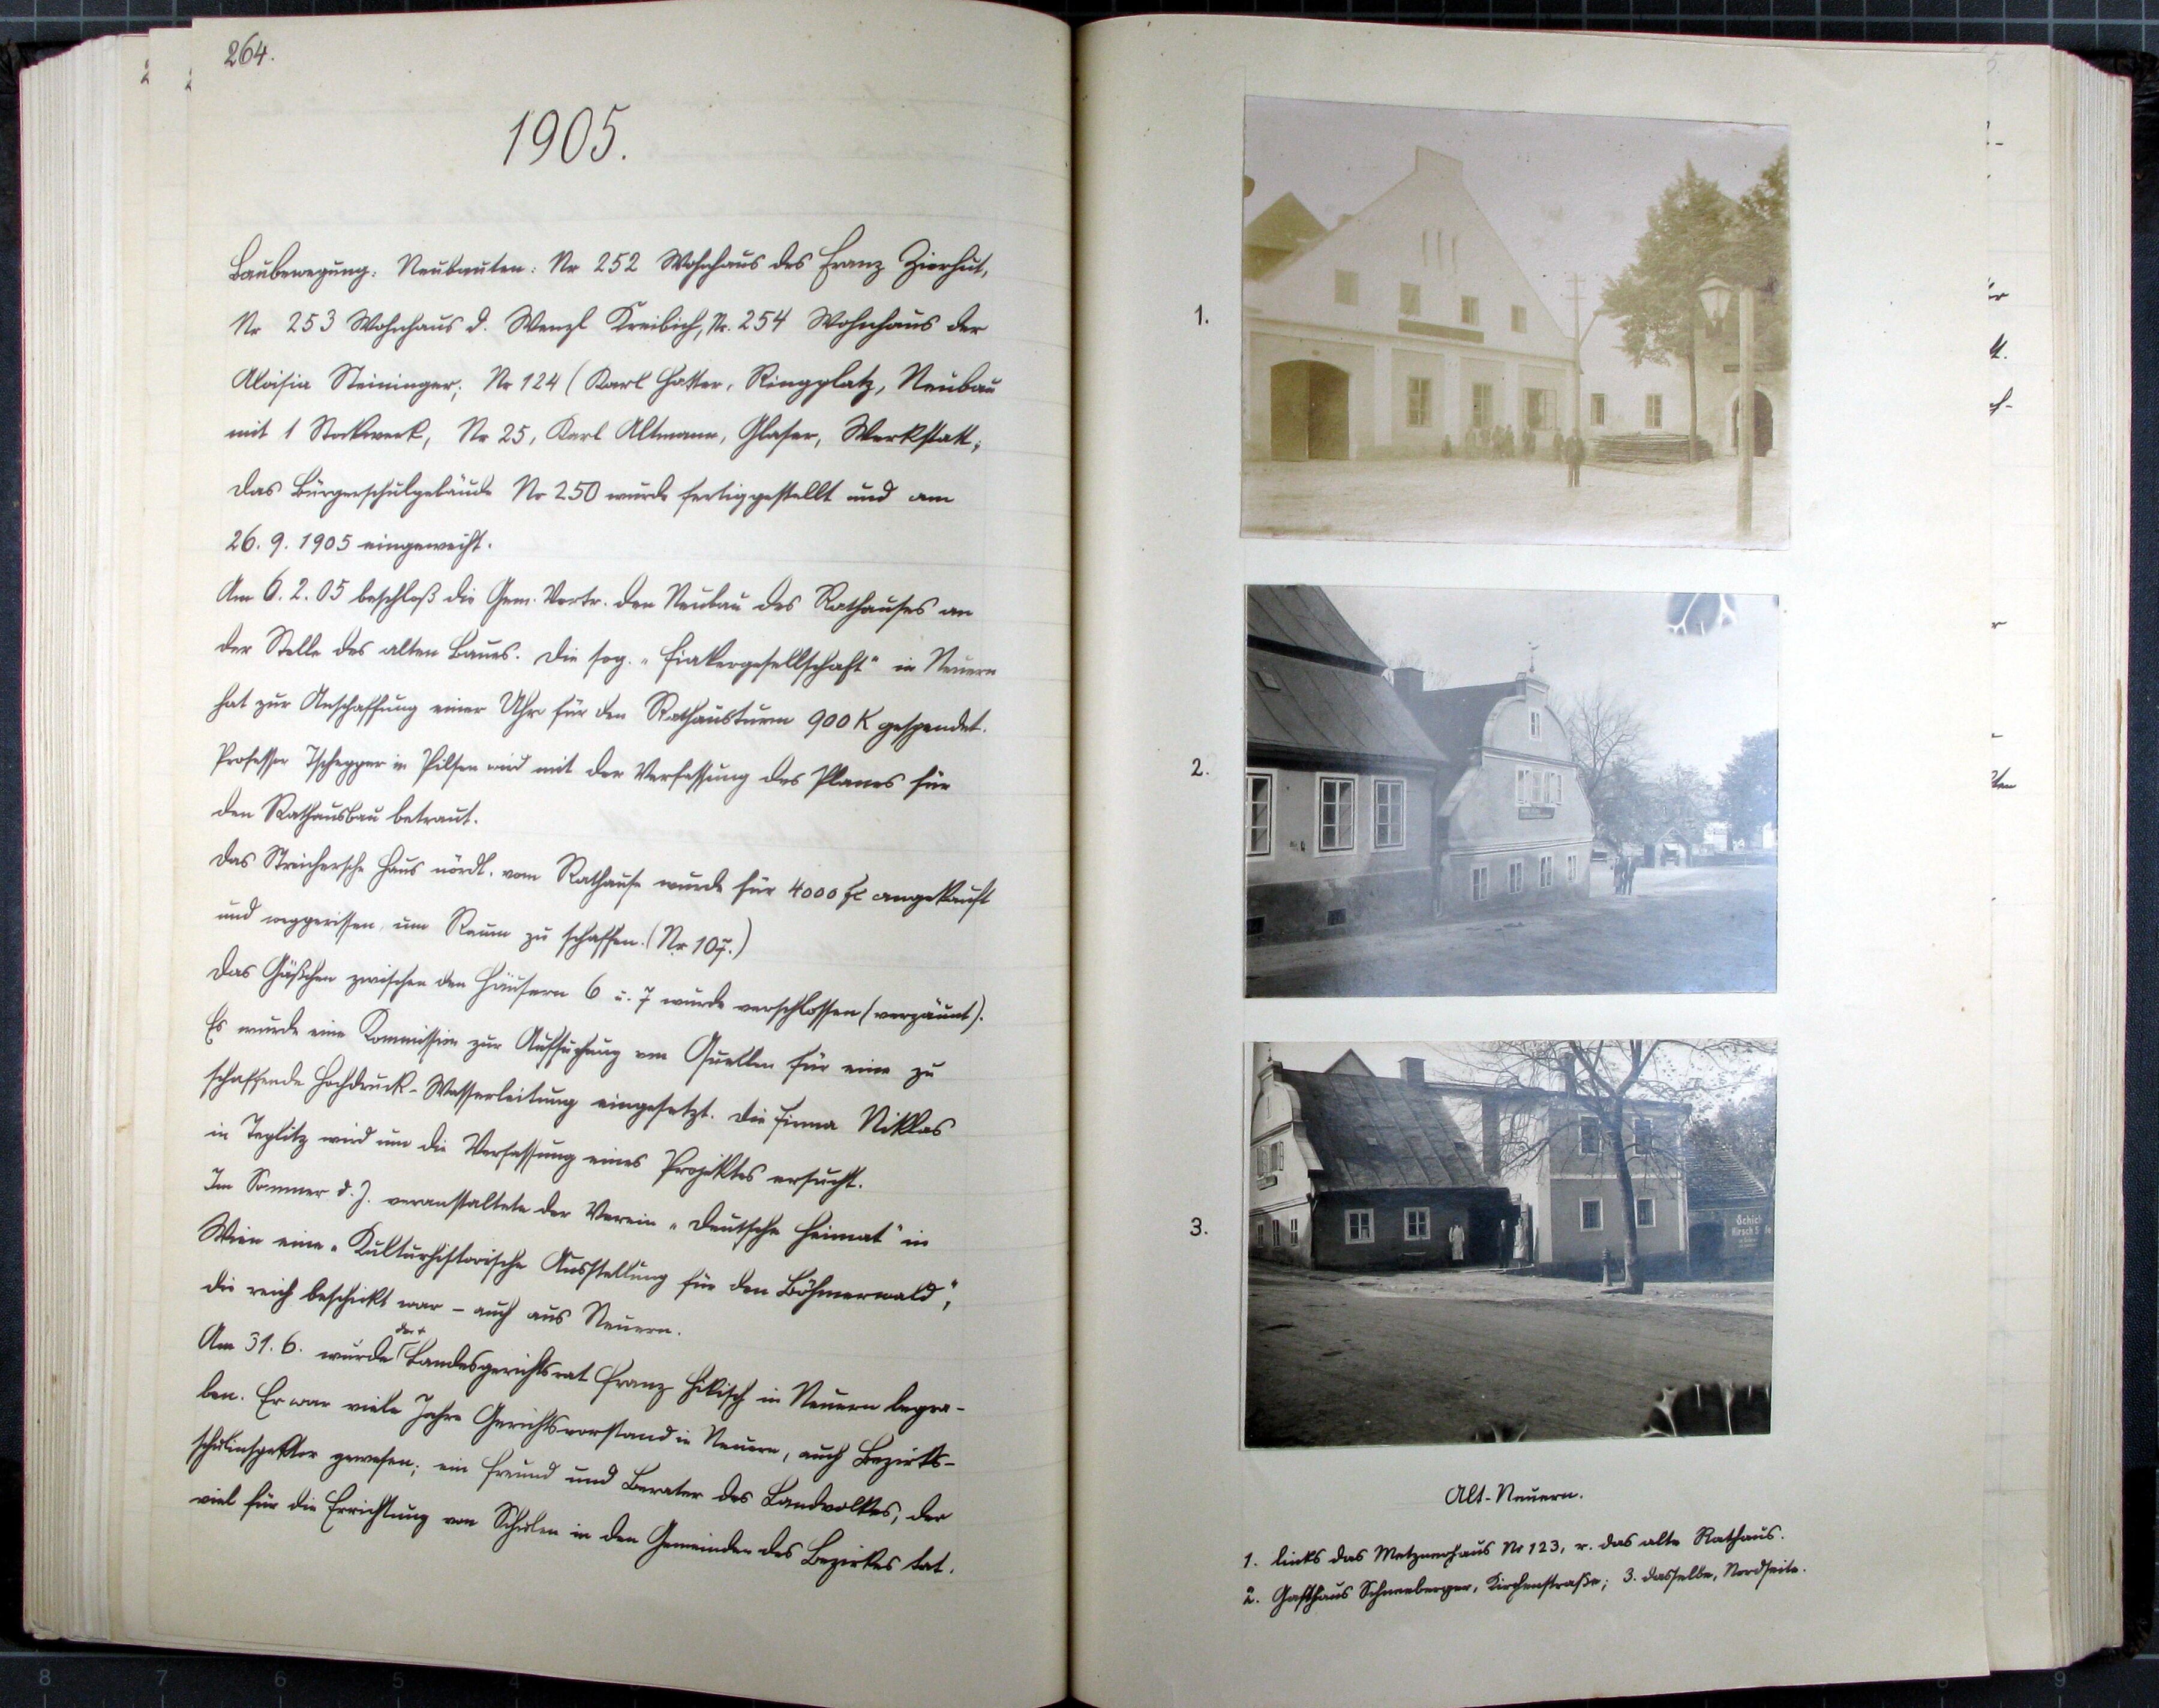 264.
1905.
Baubewegung: Neubauten: Nr 252 Wohnhaus des Franz Zierhut,
Nr 253 Wohnhaus d. Wenzl Kreibich, Nr. 254 Wohnhaus der
Aloisia Steininger; Nr 124 (Karl Hatter, Ringplatz, Neubau
mit 1 Stockwerk, Nr 25, Karl Altmann, Glaser, Werkstatt;
das Bürgerschulgebäude Nr 250 wurde fertiggestellt und am
26. 9. 1905 eingeweiht.
Am 6. 2. 05 beschloß die Gem. Vertr. den Neubau des Rathauses an
der Stelle des alten Baues. Die sog. „Fiakergesellschaft" in Neuern
hat zur Anschaffung einer Uhr für den Rathausturm 900 K gespendet.
Professor Tschepper in Pilsen wird mit der Verfassung des Planes für
den Rathausbau betraut.
Das Streichersche Haus nördl. vom Rathause wurde für 4000 fl angekauft
und weggerissen, um Raum zu schaffen. (Nr 107.)
Das Gäßchen zwischen den Häusern 6 u. 7 wurde verschlossen (verzäunt).
Es wurde eine Kommission zur Aufsuchung von Quellen für eine zu
schaffende Hochdruck-Wasserleitung eingesetzt. Die Firma Niklas
in Teplitz wird um die Verfassung eines Projektes ersucht.
Im Sommer d. J. veranstaltete der Verein „Deutsche Heimat" in
Wien eine „Kulturhistorische Ausstellung für den Böhmerwald",
die reich beschickt war – auch aus Neuern.
Am 31. 6. wurde der Landesgerichtsrat Franz Hikisch in Neuern begra-
ben. Er war viele Jahre Gerichtsvorstand in Neuern, auch Bezirks-
schulinspektor gewesen; ein Freund und Berater des Landvolkes, der
viel für die Errichtung von Schulen in den Gemeinden des Bezirkes tat.
1.
2.
3.
Schich
Hirsch S
Alt-Neuern.
1. links das Metznerhaus Nr 123, r. das alte Rathaus.
2. Gasthaus Schneeberger, Kirchenstraße; 3. dasselbe, Nordseite.
8 7 6 5 4
8 9